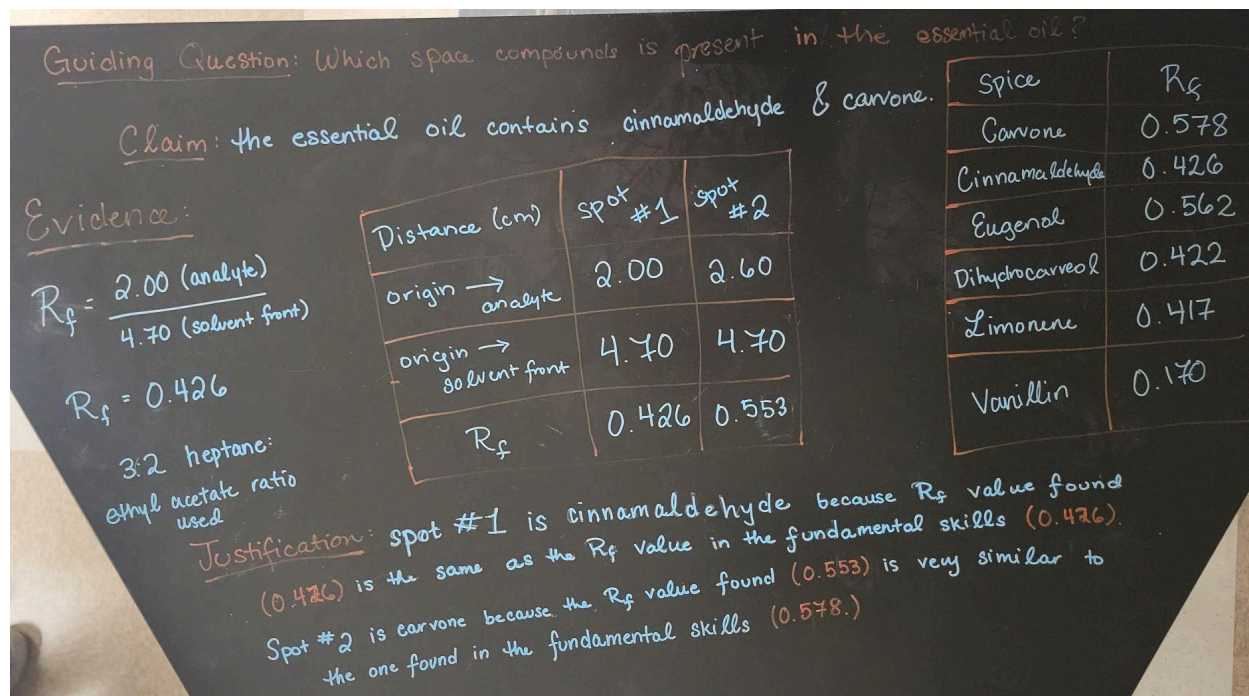 Guiding Question: Which space compounds is present in the essential oil?
Claim: the essential oil contains cinnamaldehyde & carvone.
Evidence:
Rf = 2.00 (analyte)
4.70 (solvent front)
Rf = 0.426
3:2 heptane:
ethyl acetate ratio
used
Distance (cm) spot #1 spot #2
origin → analyte 2.00 2.60
origin → solvent front 4.70 4.70
Rf 0.426 0.553
Spice Rf
Carvone 0.578
Cinnamaldehyde 0.426
Eugenol 0.562
Dihydrocarveol 0.422
Limonene 0.417
Vanillin 0.170
Justification: spot #1 is cinnamaldehyde because Rf value found
(0.426) is the same as the Rf value in the fundamental skills (0.426).
Spot #2 is carvone because the Rf value found (0.553) is very similar to
the one found in the fundamental skills (0.578.)